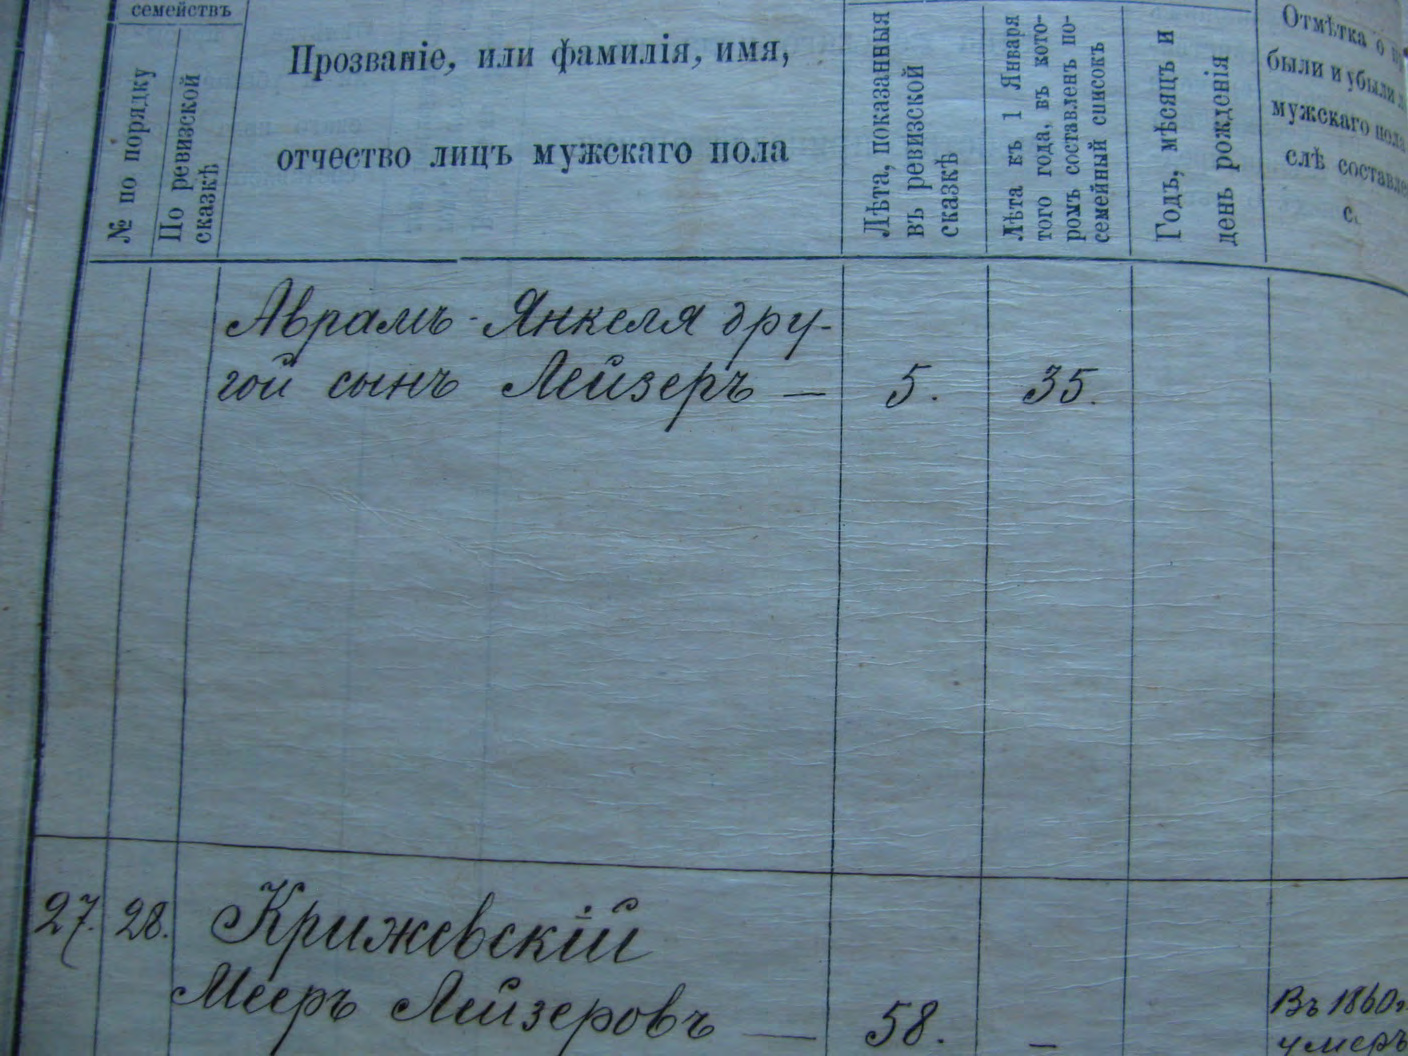 семействъ
№ по порядку
По ревизской
сказкѣ
Прозваніе, или фамилія, имя,
отчество лицъ мужскаго пола
Лѣта, показанныя
въ ревизской
сказкѣ
Лѣта къ 1 Января
того года, въ кото-
ромъ составленъ по-
семейный списокъ
Годъ, мѣсяцъ и
день рожденія
Отмѣтка о
были и убыли
мужскаго пола
слѣ составле
Аврамъ-Янкеля дру-
гой сынъ Лейзеръ — 5. 35.
27. 28. Крижевскій
Мееръ Лейзеровъ — 58. —
Въ 1860 г.
умеръ